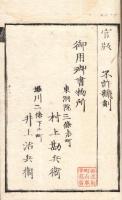 官版
不許翻刻
御用御書物所
東洞院三條上ル町
村上勘兵衛
堀川二條下ル町
井上治兵衛